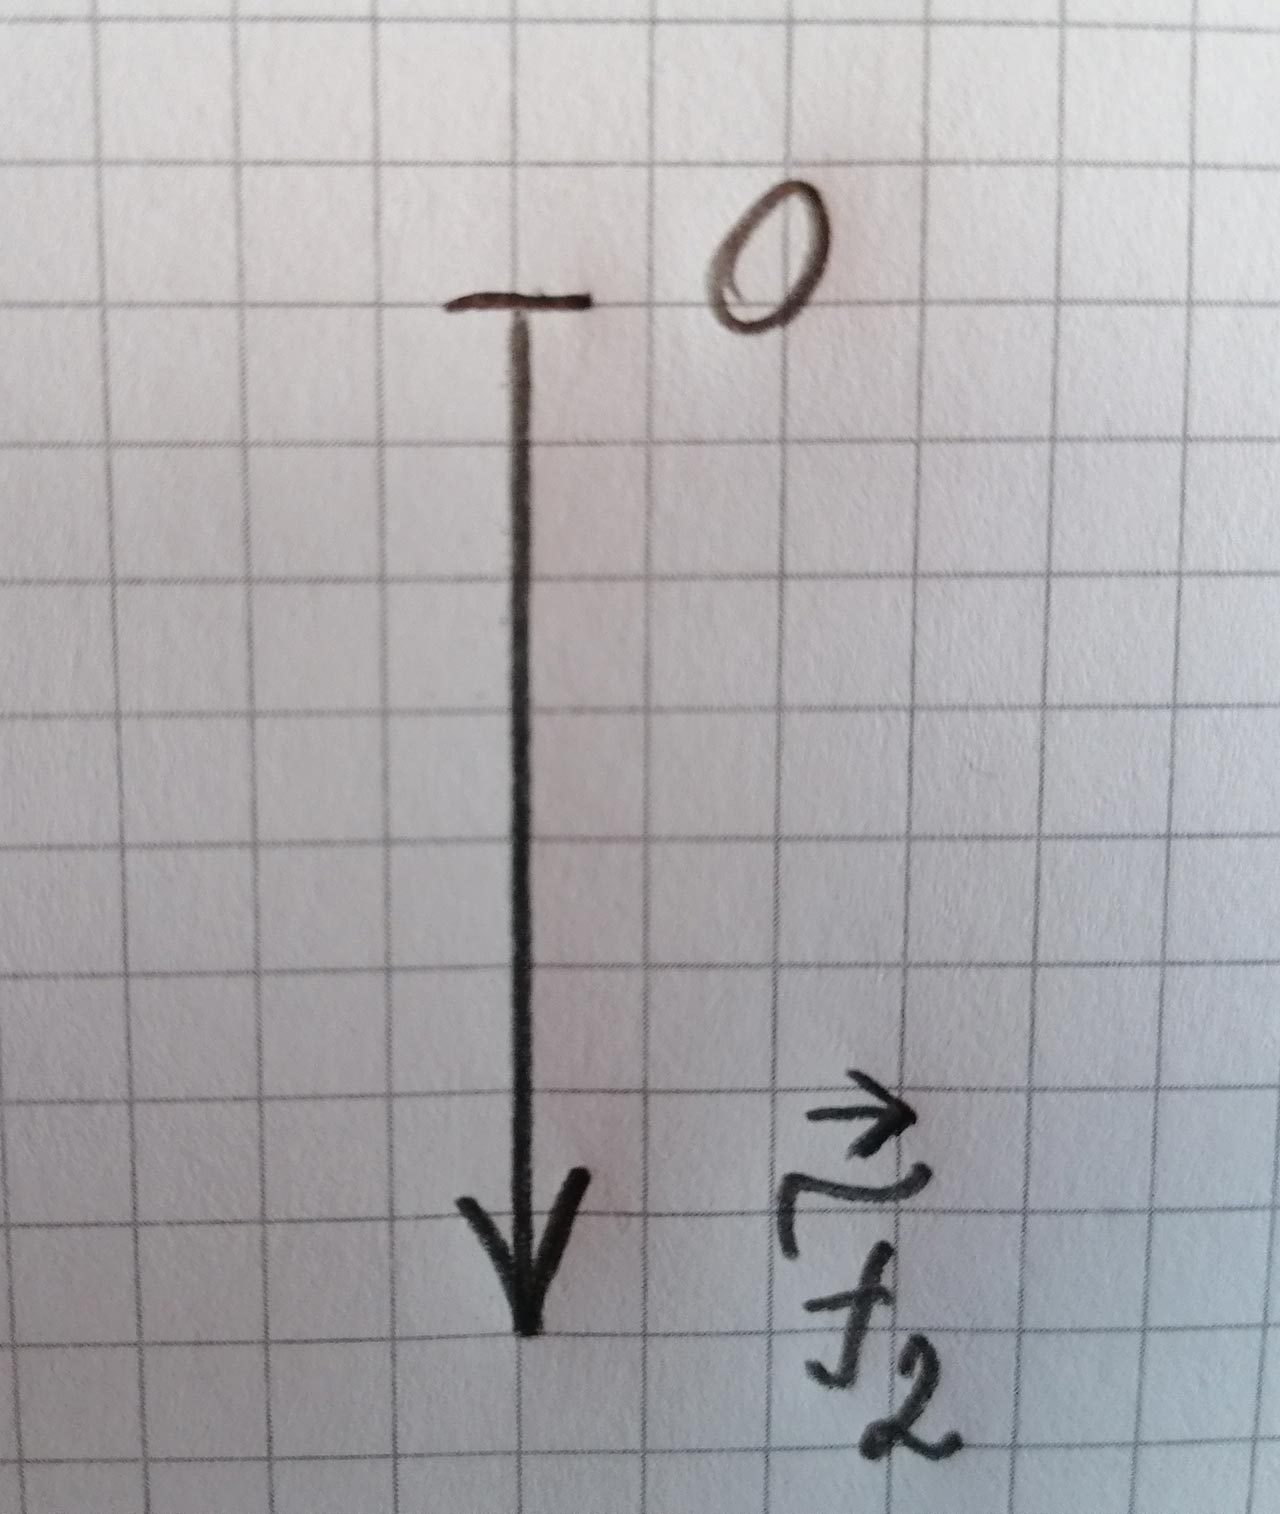 O
→
F₂